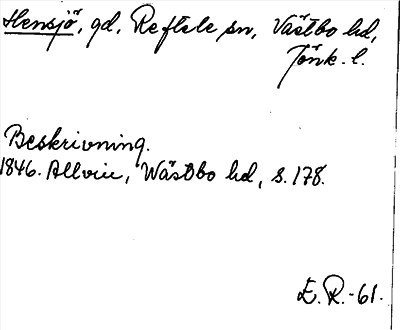 Hensjö, gd, Reftele sn, Västbo hd,
Jönk. l.
Beskrivning.
1846. Allvin, Wästbo hd, s. 178.
E. R. -61.